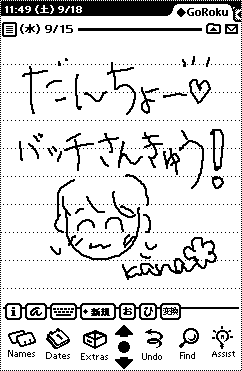 11:49 (土) 9/18 ◆GoRoku
(水) 9/15
だんちょー♡
バッチさんきゅう!
kana
i あ ・新規 お ひ 変換
Names Dates Extras Undo Find Assist